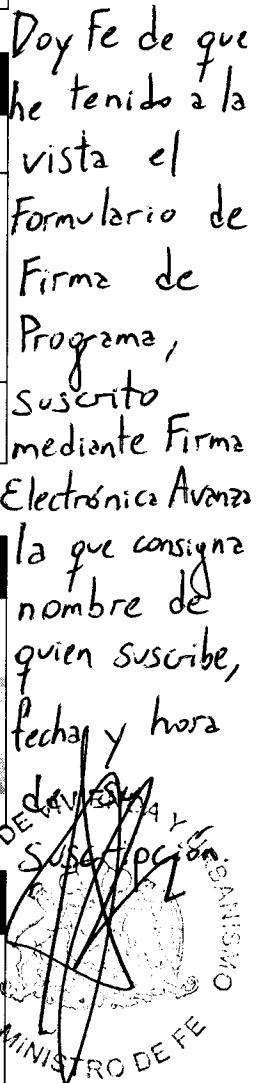 Doy Fe de que
he tenido a la
vista el
Formulario de
Firma de
Programa,
suscrito
mediante Firma
Electrónica Avanza
la que consigna
nombre de
quien suscribe,
fecha y hora
de su
suscripción.
DE VIVIENDA Y URBANISMO
MINISTRO DE FE